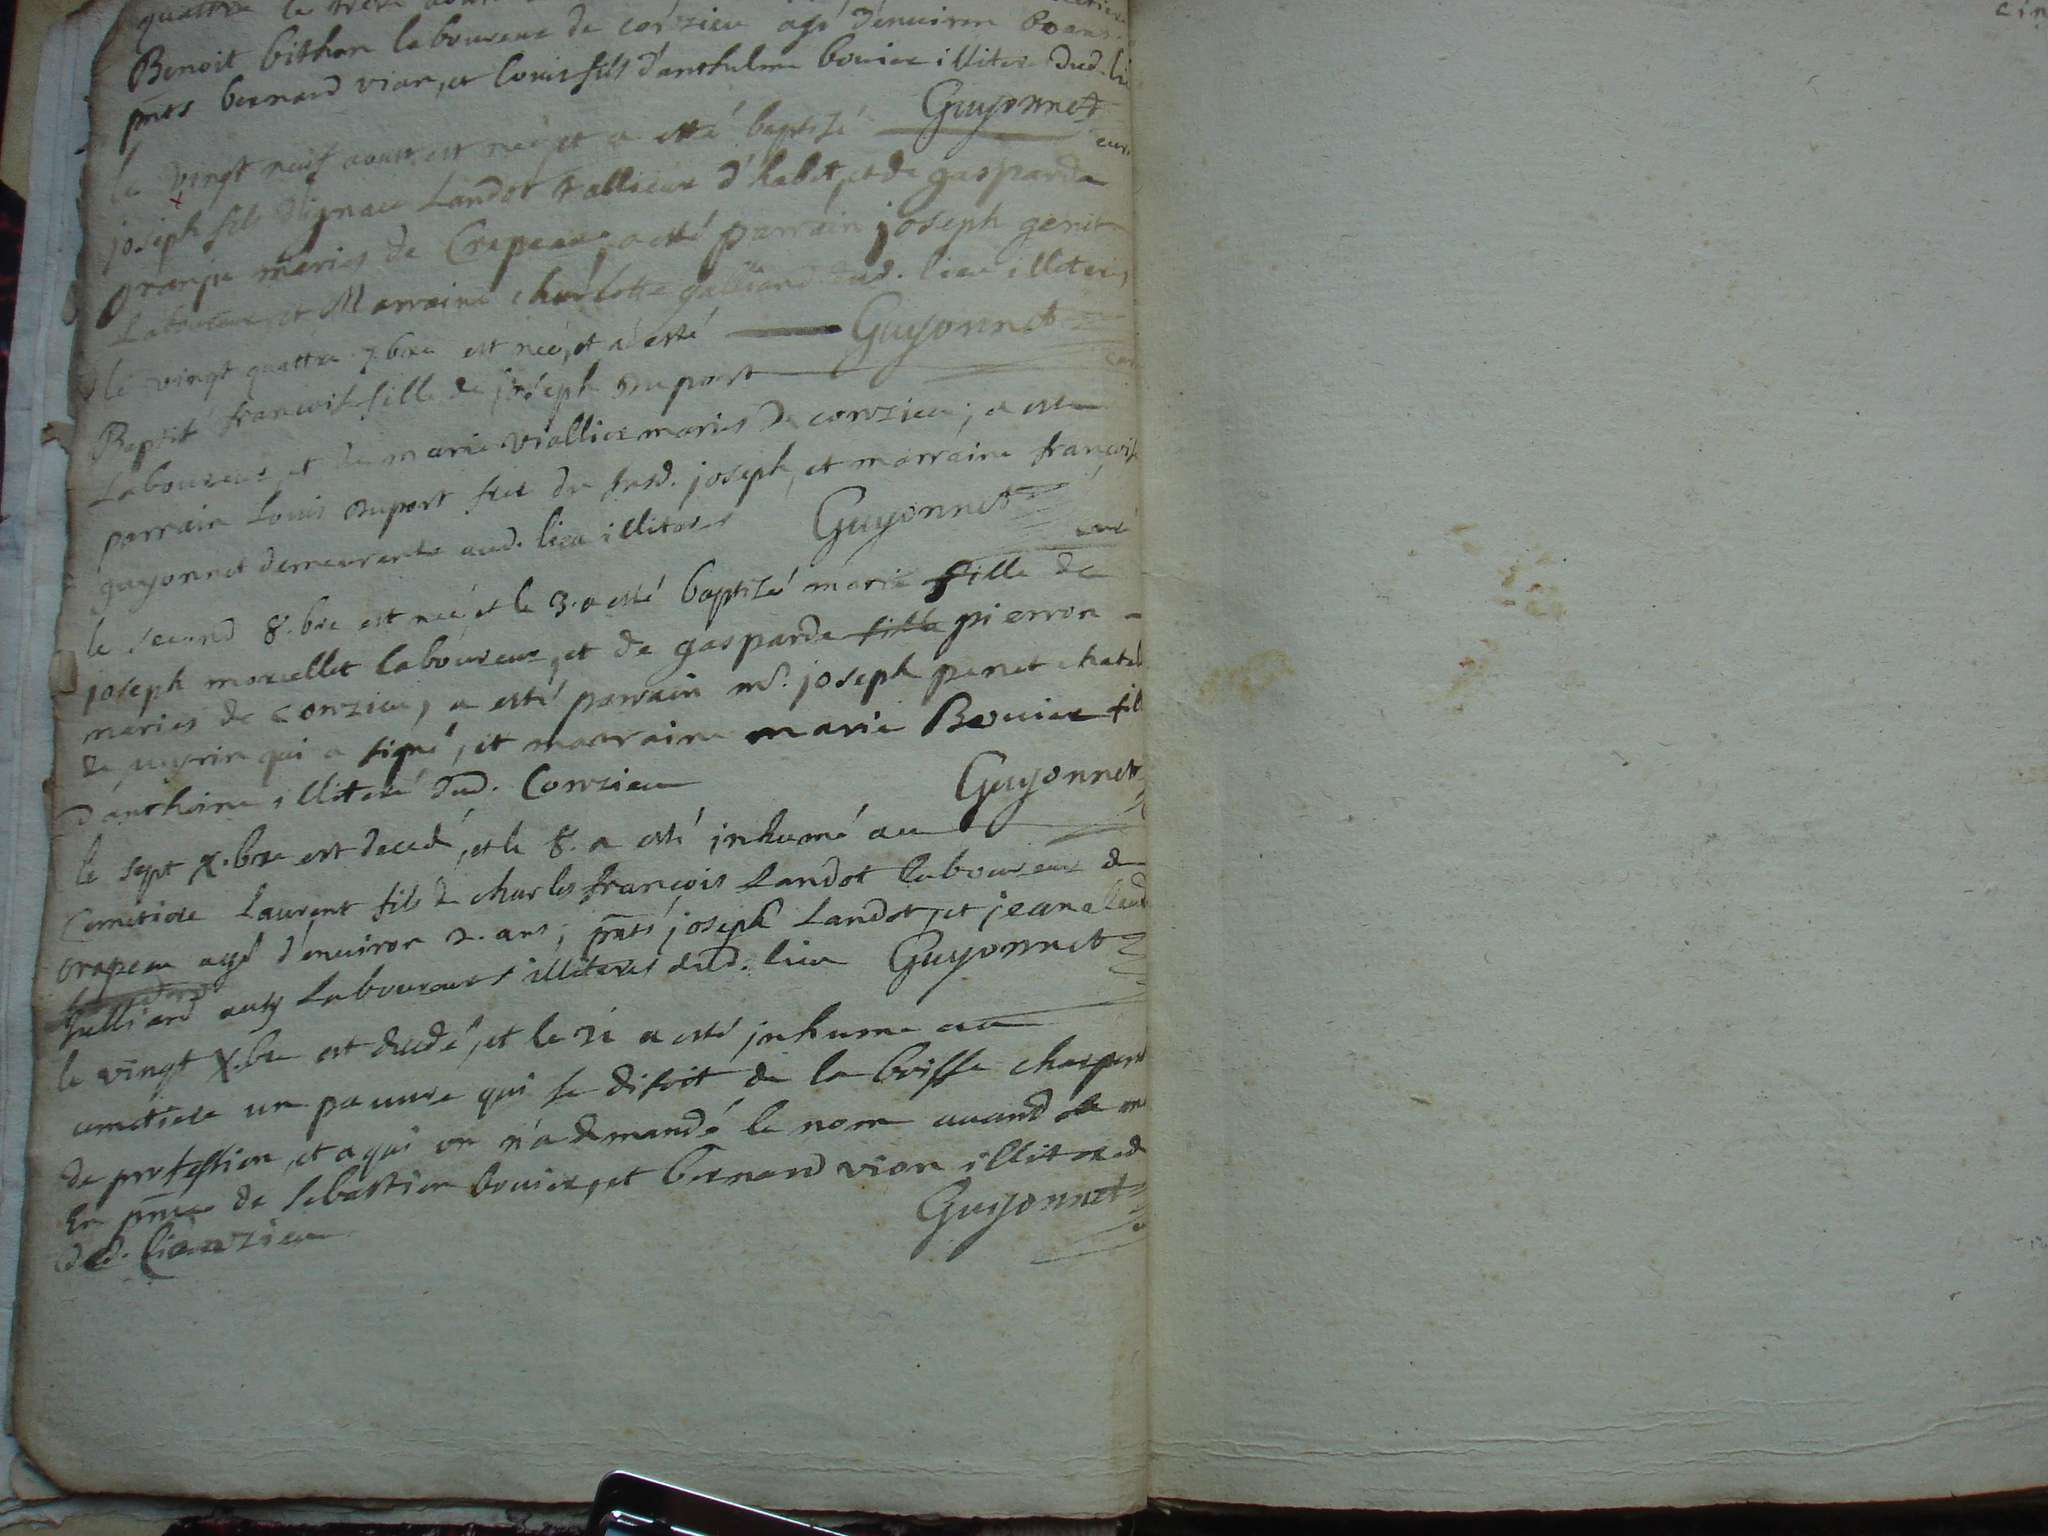 quattre le
Benoit bithon laboureur de corzieu agé d'enuiron
pnts bernard vion, et Louis fils d'anthelme bouier illiter dud. li
le vingt neuf aoust est neé, et a esté baptisé Guyonnet
curé
joseph fils d'ignace Landot tallieur d'habit, et de gasparda
granju mariés de Crapeau, a esté parrain joseph genit
Laboureur, et Marraine charlotte galliand dud. lieu illiterés
le vingt quattre 7.bre est neé, et a esté Guyonnet
Baptisé francoise fille de joseph duport
Laboureur, et de marie viallier mariés de corzieu, a esté
parrain Louis duport frere du susd. joseph, et marraine françoise
guyonnet demeurante aud. lieu illiterés Guyonnet
curé
le second 8.bre est neé, et le 3. a esté baptisé marie fille de
joseph morellet laboureur, et de gasparde fille pierron
mariés de corzieu, a esté parrain mr. joseph penet chatel
de qui a signé, et marraine marie Bouier fil
d'anthoine illiteré dud. Corzieu Guyonnet
le sept X.bre est decedé, et le 8. a esté inhumé au
Cemetiere Laurent fils de charles françois Landot laboureur de
crapeau agé d'enuiron 2. ans, pnts joseph Landot, et jean claud
galliard aussy Laboureurs illiterés dud. lieu Guyonnet
le vingt X.bre est decedé, et le 21 a esté inhumé au
cemetiere un pauure qui se disoit de la boisse charpent
de profession, et a qui on n'a demandé le nom auand
En pnce de sebastien bouier, et bernard vion illiteré de
dud. Corzieu Guyonnet
cin